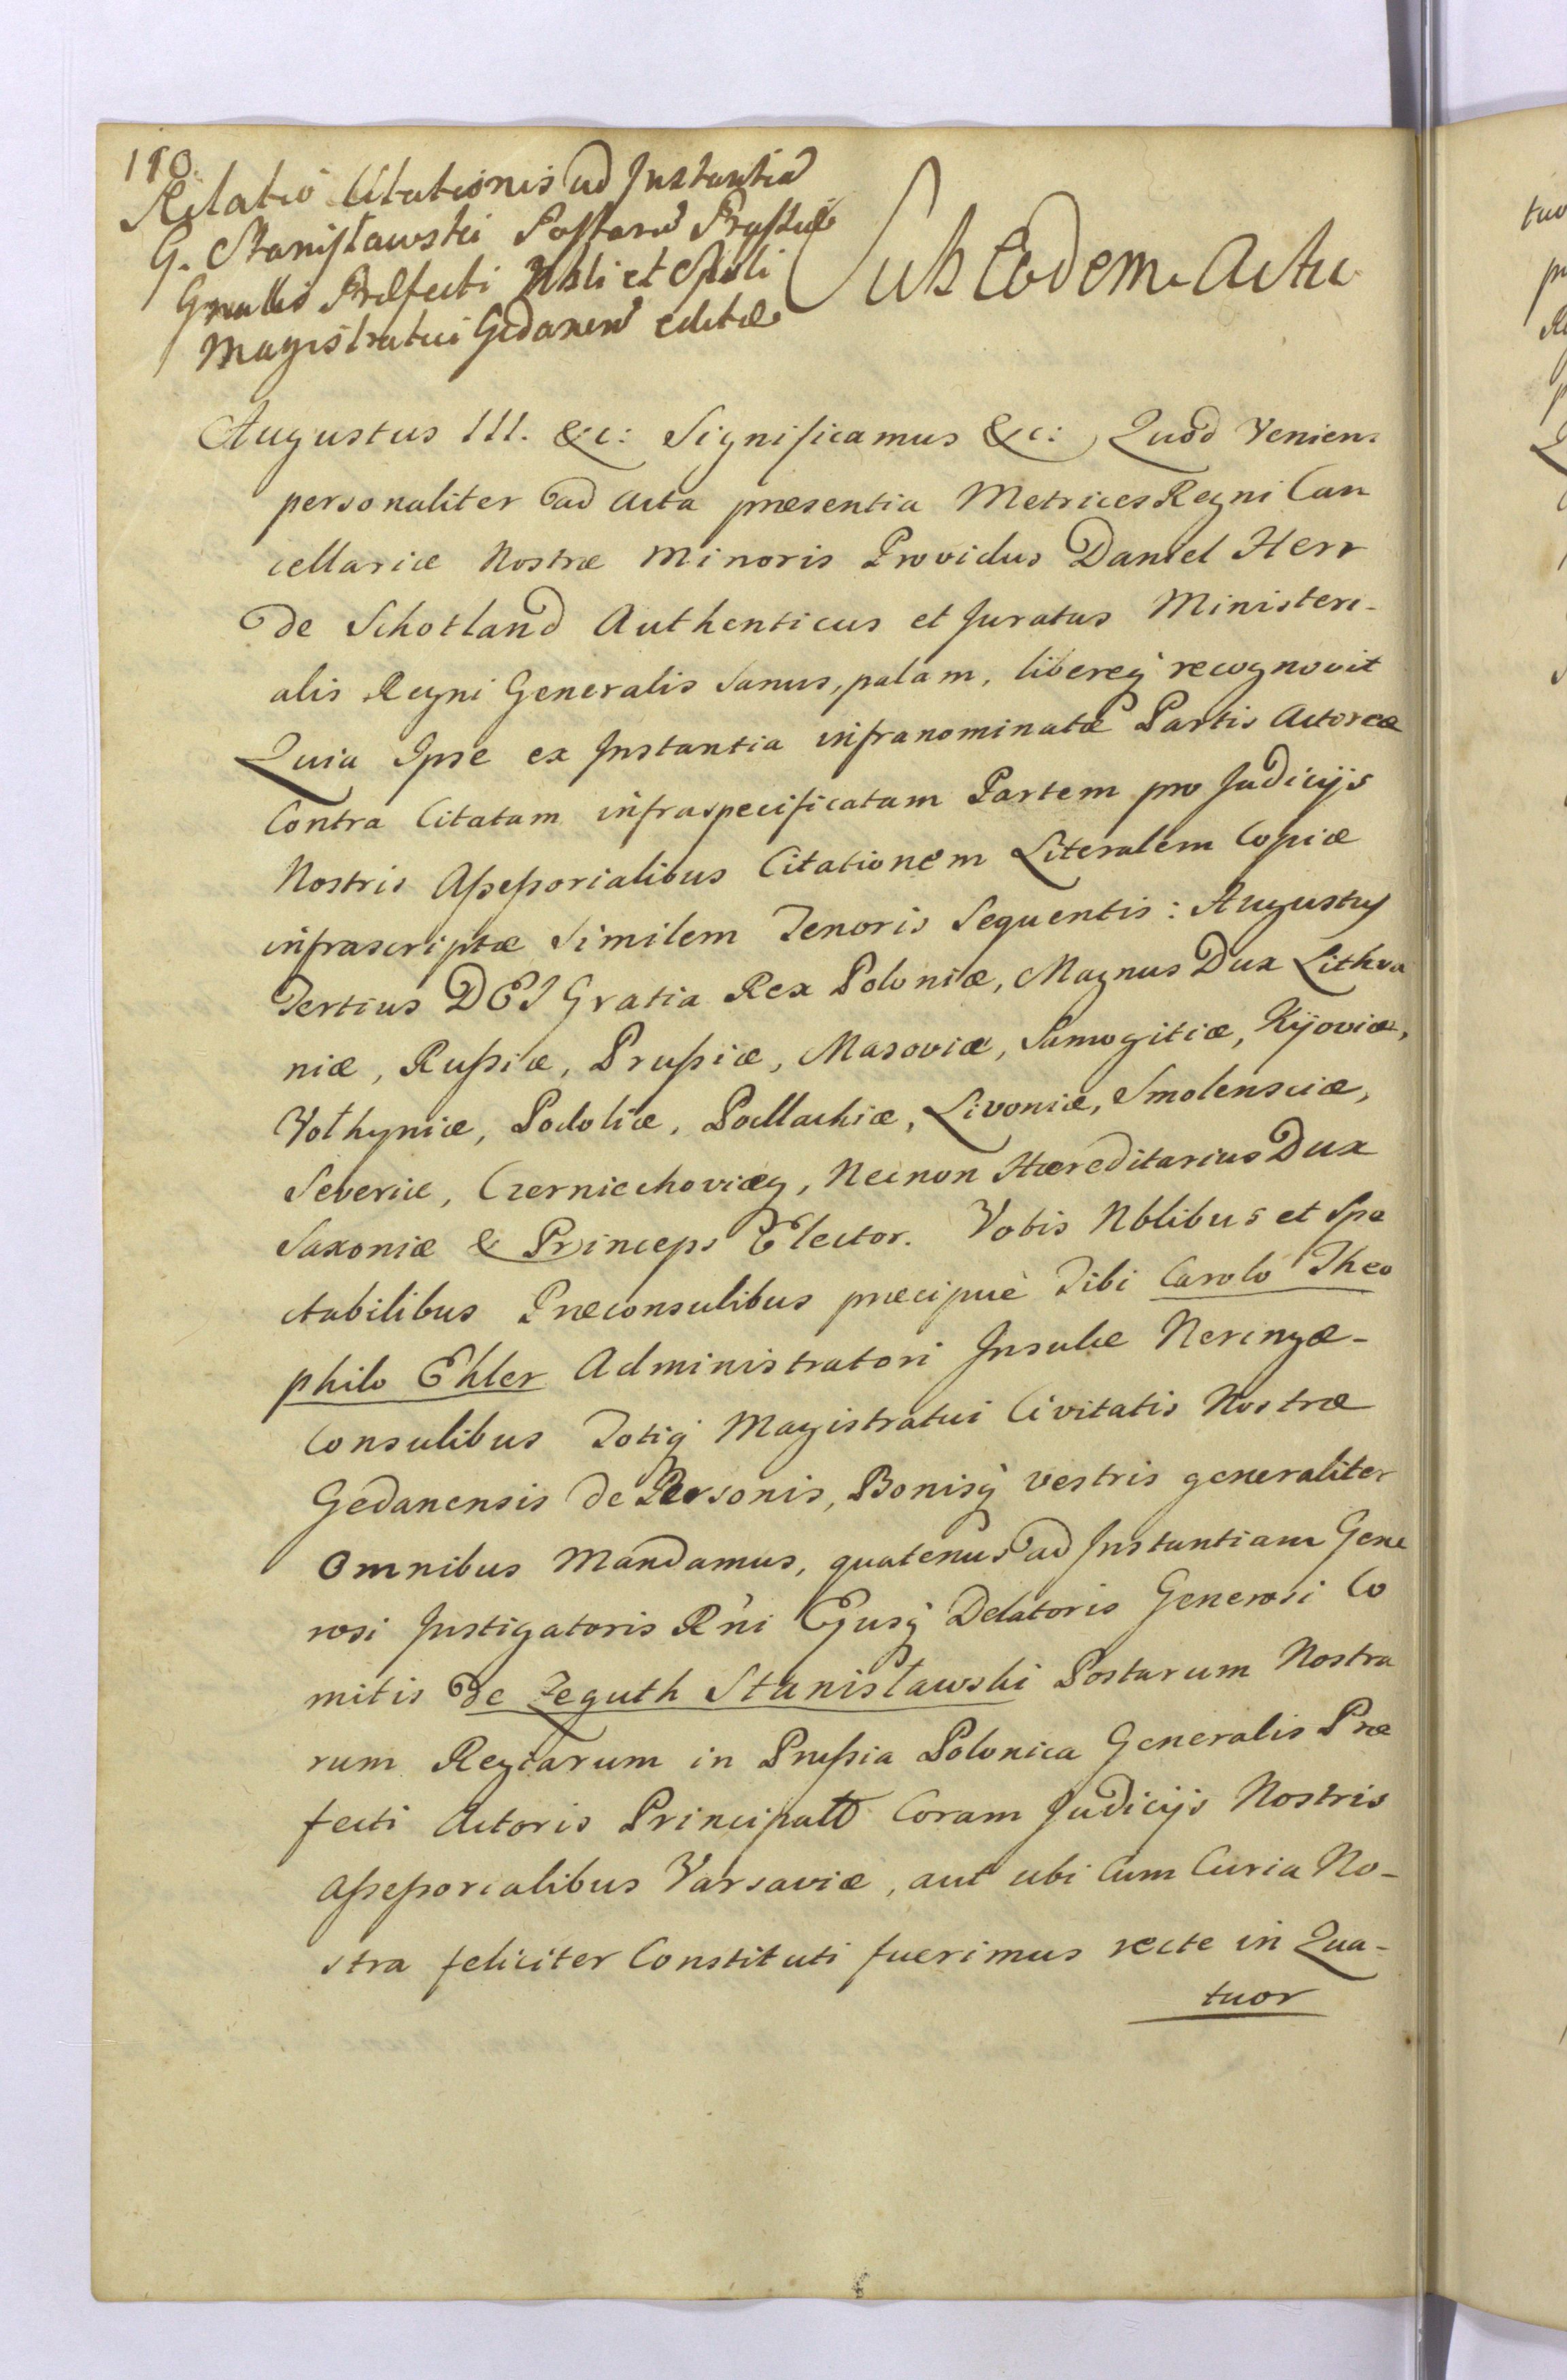 190.
Relatio Citationis ad Instantia
G. Stanisławski Postaru Prussiæ
Gnralis Præfecti Nbli et Spbli
Magistratui Gedanen editæ
Sub Eodem Actu
Augustus III. &c: Significamus &c: Quod Veniens
personaliter ad Acta præsentia Metrices Regni Can
cellariæ Nostræ Minoris Providus Daniel Herr
de Schotland Authenticus et Juratus Ministeri-
alis Regni Generalis sanus, palam, libereq recognovit
Quia Ipse ex Instantia infranominatæ Partis Actoreæ
Contra Citatam infraspecificatam Partem pro Judicijs
Nostris Assessorialibus Citationem Literalem Copiæ
infrascriptæ Similem Tenoris Sequentis: Augustus
Tertius DEI Gratia Rex Poloniæ, Magnus Dux Lithva
niæ, Russiæ, Prussiæ, Masoviæ, Samogitiæ, Kijoviæ,
Vołhyniæ, Podoliæ, Podlachiæ, Livoniæ, Smolensciæ,
Severiæ, Czerniechoviæq, Necnon Hæreditarius Dux
Saxoniæ & Princeps Elector. Vobis Nblibus et Spe
ctabilibus Præconsulibus præcipuè Tibi Carolo Theo
philo Ehler Administratori Insulæ Neringæ-
Consulibus Totiq Magistratui Civitatis Nostræ
Gedanensis de Personis, Bonisq vestris generaliter
Omnibus Mandamus, quatenus ad Instantiam Gene
rosi Instigatoris Rni Ejusq Delatoris Generosi Co
mitis de Zeguth Stanisławski Postarum Nostra
rum Regiarum in Prussia Polonica Generalis Præ
fecti Actoris Principali Coram Judicijs Nostris
Assessorialibus Varsaviæ, aut ubi Cum Curia No-
stra feliciter Constituti fuerimus recte in Qua-
tuor